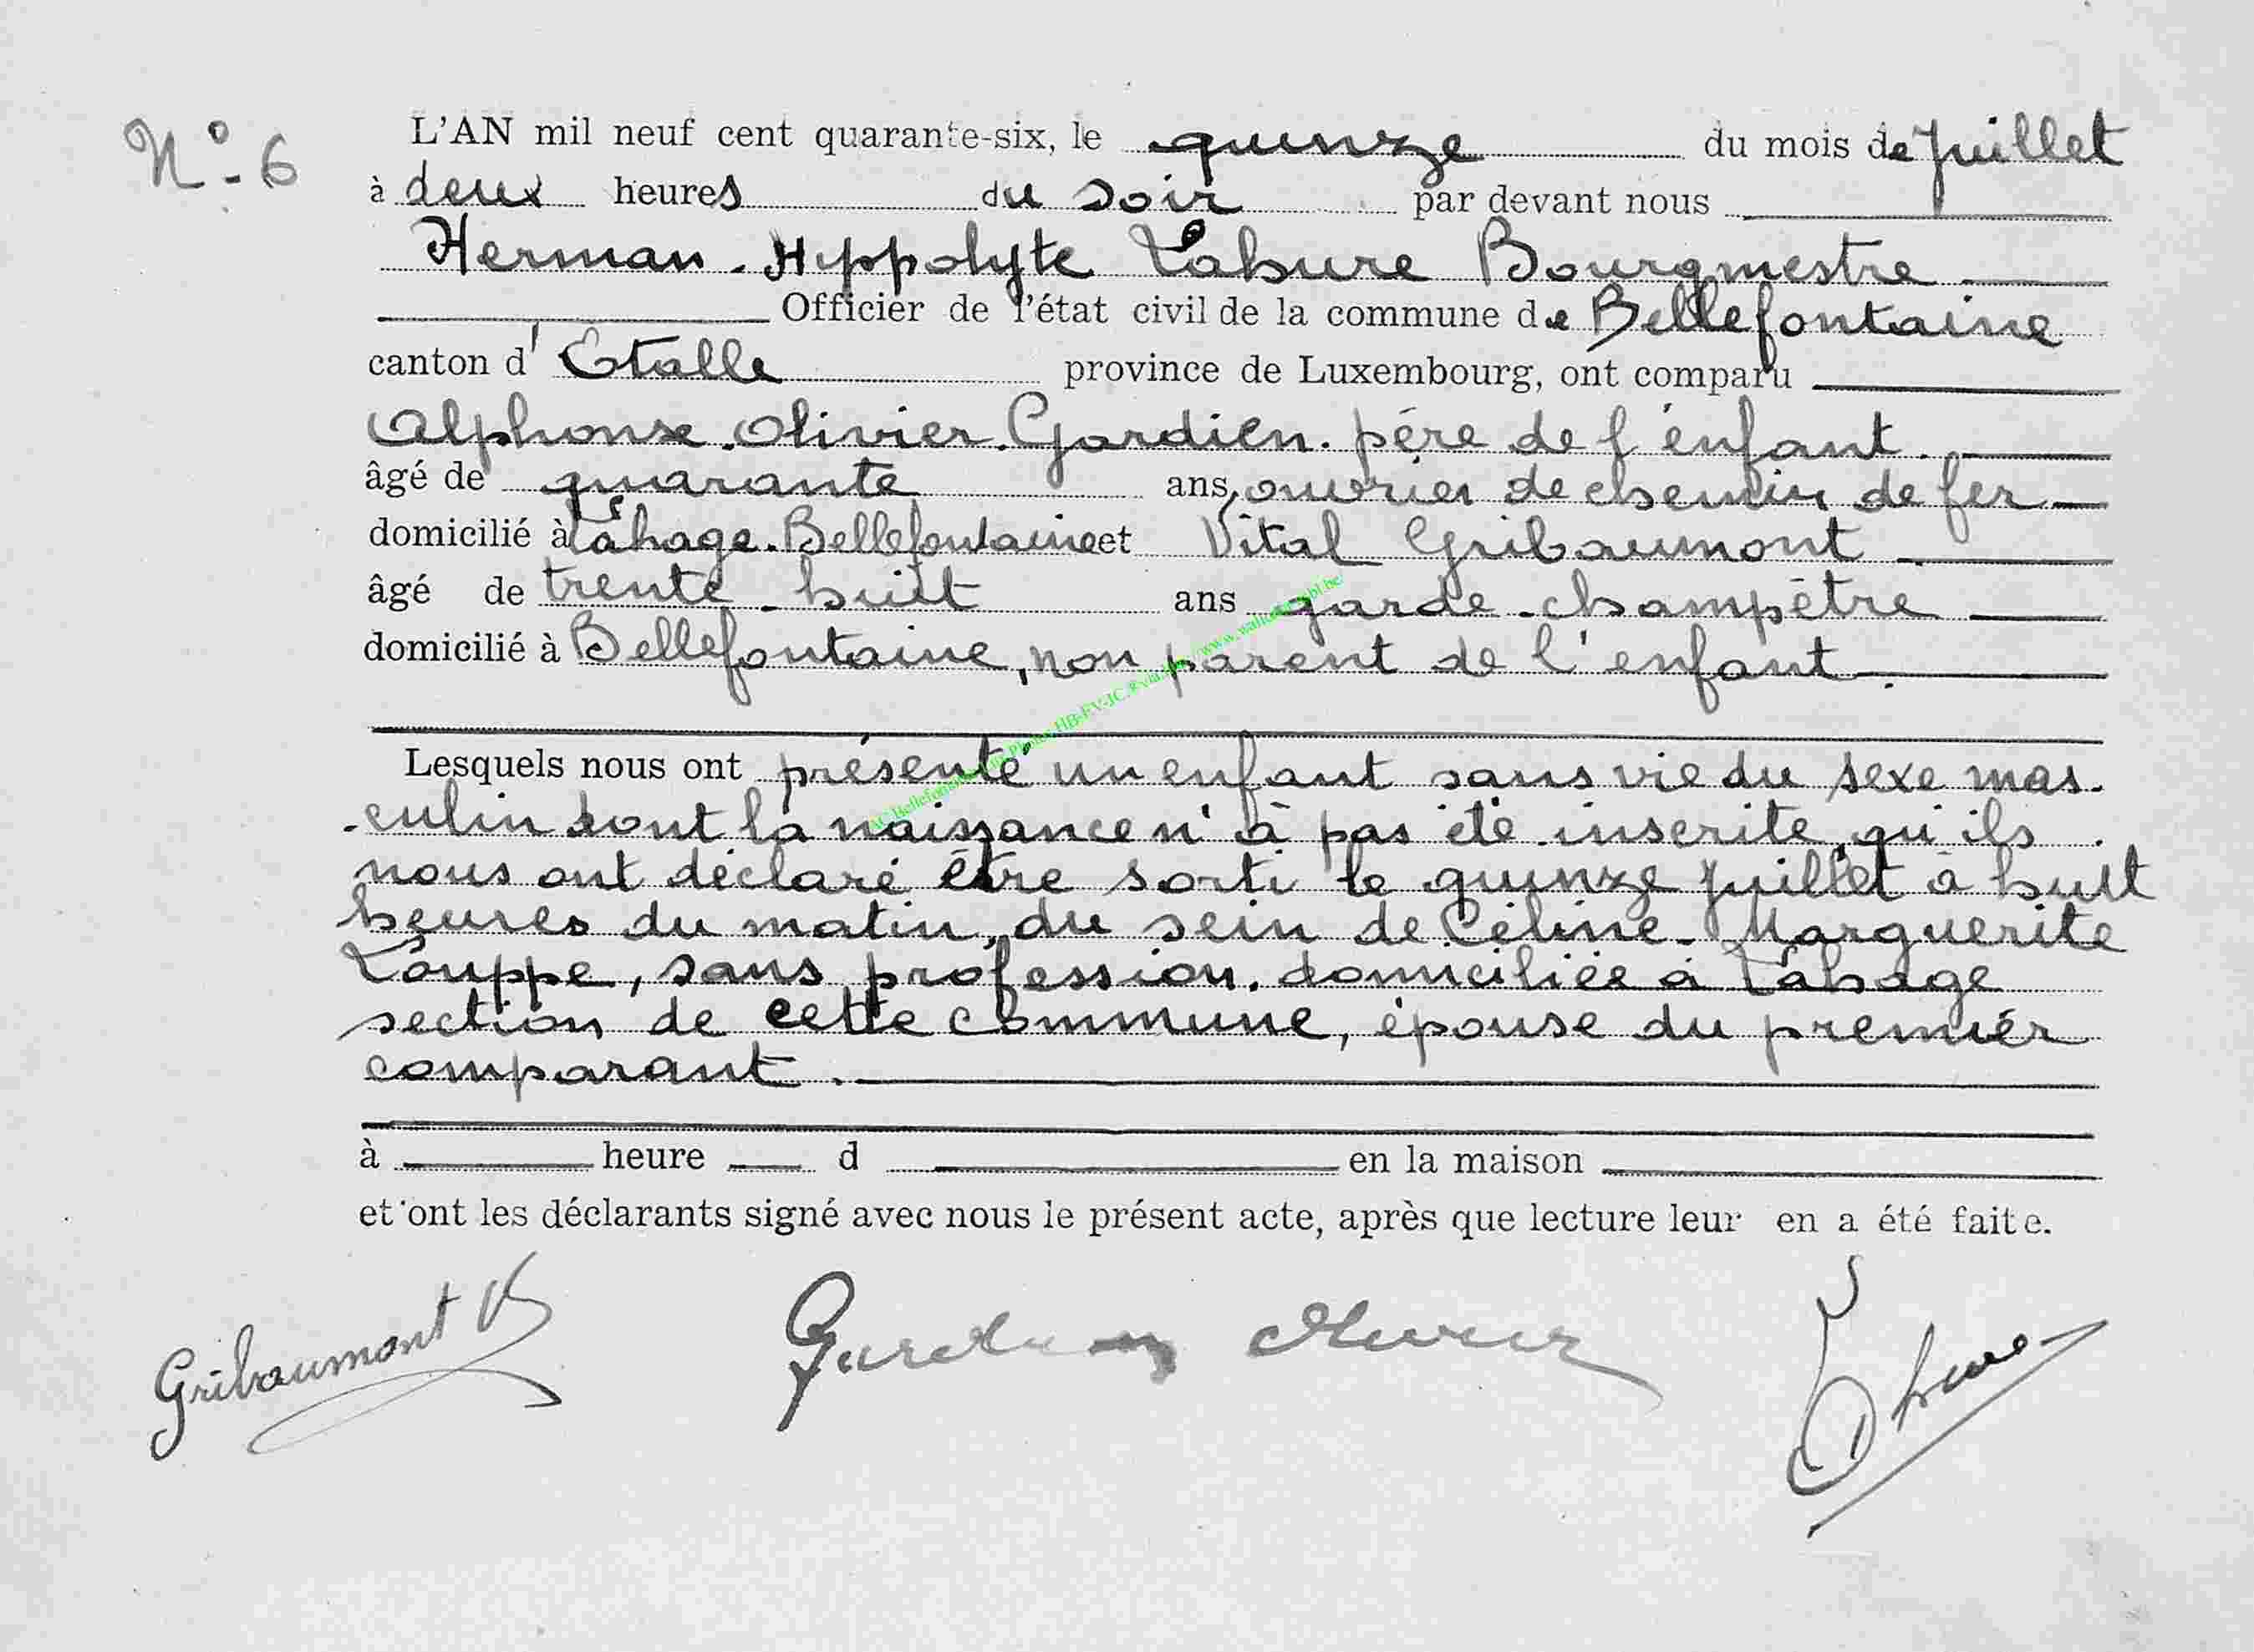 N° 6
L'AN mil neuf cent quarante-six, le quinze du mois de Juillet
à deux heures du soir par devant nous
Herman-Hippolyte Lahure Bourgmestre
Officier de l'état civil de la commune de Bellefontaine
canton d'Etalle province de Luxembourg, ont comparu
Alphonse Olivier Gardien. père de l'enfant.
âgé de quarante ans, ouvrier de chemin de fer
domicilié à Lahage-Bellefontaine et Vital Gribaumont
âgé de trente-huit ans garde-champêtre
domicilié à Bellefontaine, non parent de l'enfant.
Lesquels nous ont présenté un enfant sans vie du sexe mas-
-culin dont la naissance n'à pas été inscrite, qu'ils
nous ont déclaré être sorti le quinze Juillet à huit
heures du matin, du sein de Céline-Marguerite
Louppe, sans profession, domiciliée à Lahage
section de cette commune, épouse du premier
comparant.
à heure d en la maison
et ont les déclarants signé avec nous le présent acte, après que lecture leur en a été faite.
Gribaumont V Gardien Olivier Lahure